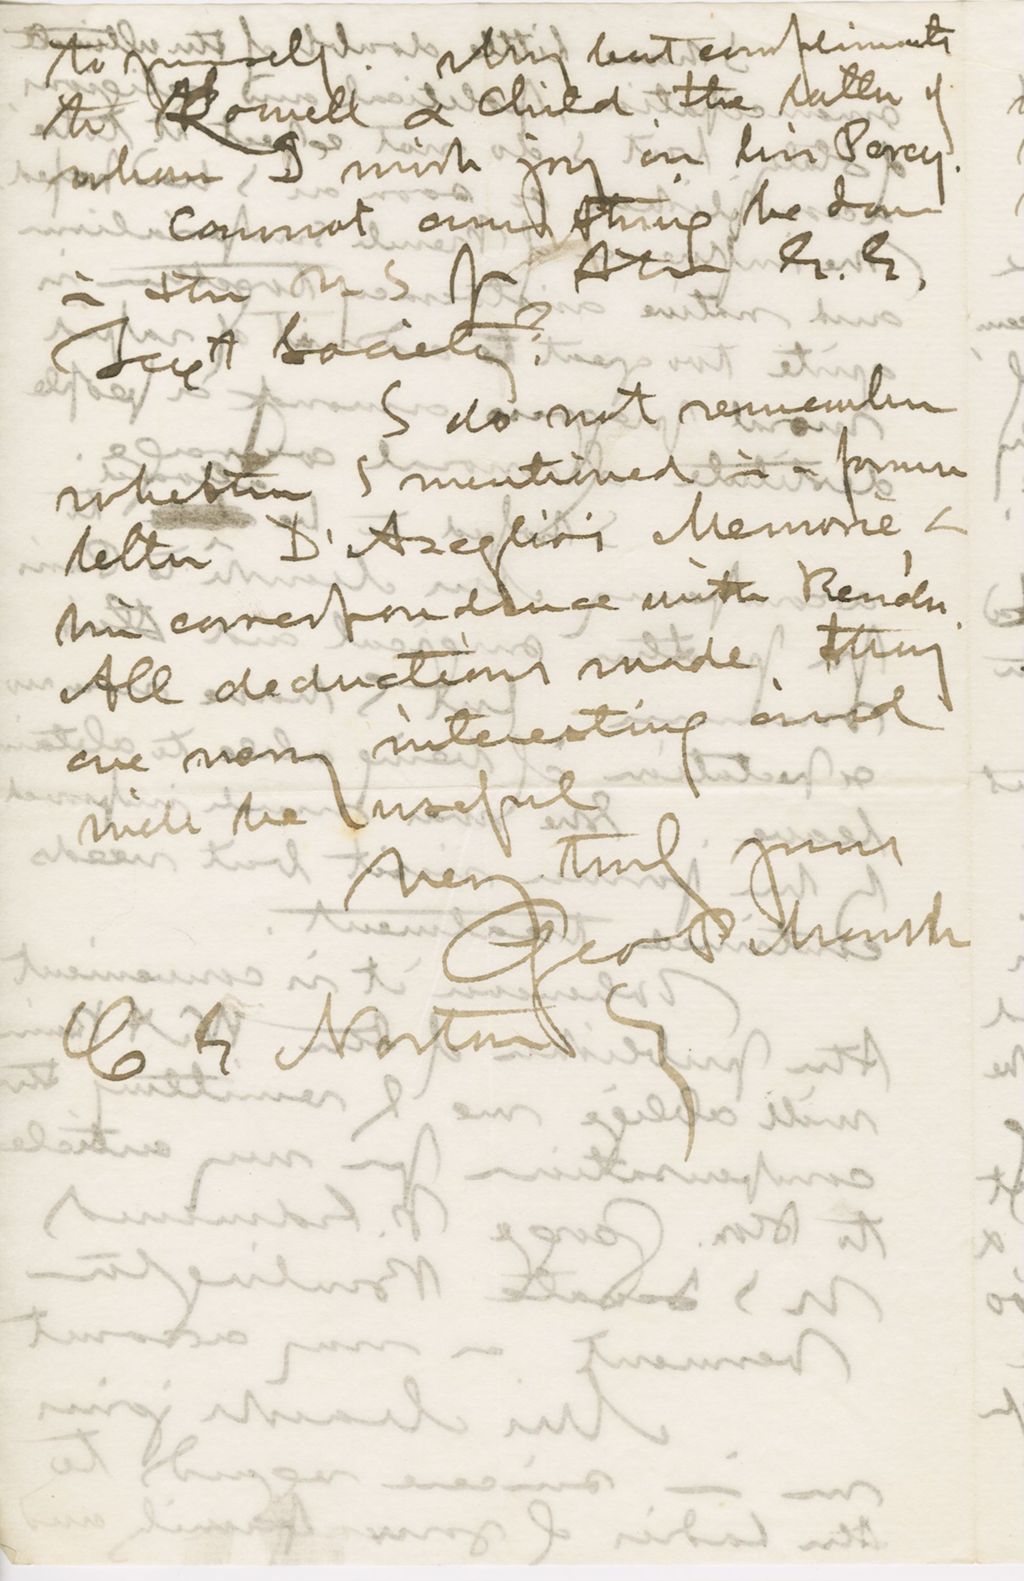 to yourself. My best compliments
to Lowell & Child, the latter of
whom I wish joy in his Percy.
Cannot anything be done
in the U S for the E. E.
Text Society?
I do not remember
whether I mentioned in a former
letter D'Azeglio's Memorie, &
his correspondence with Rendu.
All deductions made, they
are very interesting and
will be useful
Very truly yours
Geo P Marsh
C E Norton